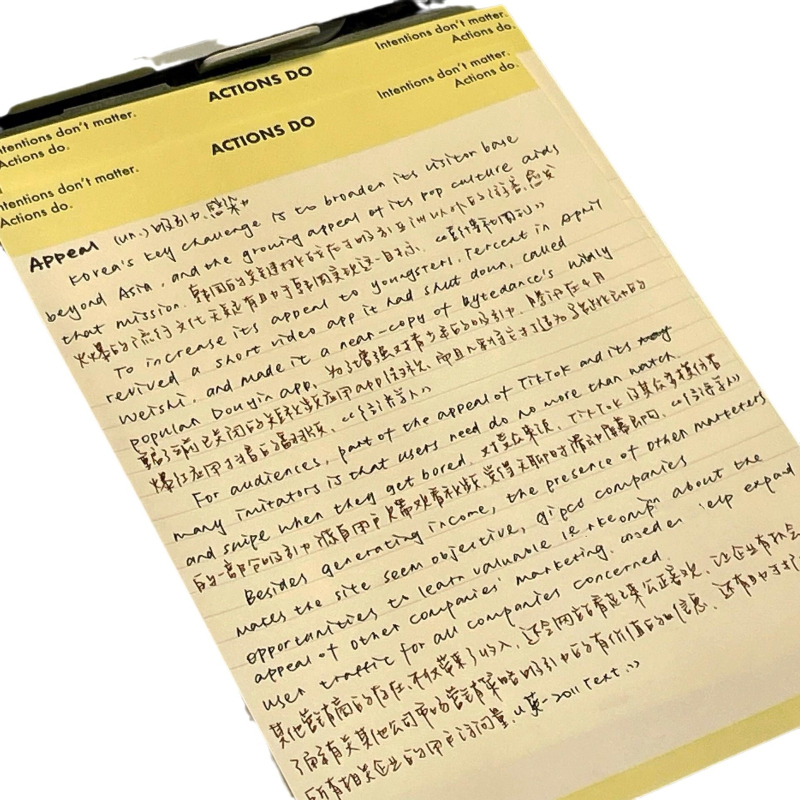 Intentions don't matter.
Actions do.
ACTIONS DO
Intentions don't matter.
Actions do.
Intentions don't matter.
Actions do.
ACTIONS DO
Intentions don't matter.
Actions do.
Appeal (un.) 吸引力、感染力
Korea's key challenge is to broaden its visitor base
beyond Asia, and the growing appeal of its pop culture aids
that mission. 韩国的关键挑战在于吸引亚洲以外的游客,
火爆的流行文化无疑有助于韩国实现这一目标。
To increase its appeal to youngsters, Tercent in April
revived a short video app it had shut down, called
Weishi, and made it a near-copy of Bytedance's wildly
popular Douyin app. 为了增强对青少年的吸引力, 腾讯在4月
已关闭的短视频应用app
爆红应用抖音的翻版。《经济学人》
For audiences, part of the appeal of TikTok and its
many imitators is that users need do no more than watch
and swipe when they get bored. 对受众来说, TikTok 及其众多模仿者
的一部分吸引力 用户只需观看视频, 觉得无聊时滑动屏幕即可。《经济学人》
Besides generating income, the presence of other marketers
makes the site seem objective, companies
opportunities to learn valuable about the
appeal of other companies' marketing, help expand
user traffic for all companies concerned.
其他营销商的存在不仅带来了收入, 还会网站看起来公正客观, 让企业有机会
了解有关其他公司市场营销策略吸引力的有价值的信息, 还有助于扩
所有相关企业的用户访问量。英一2011 Text